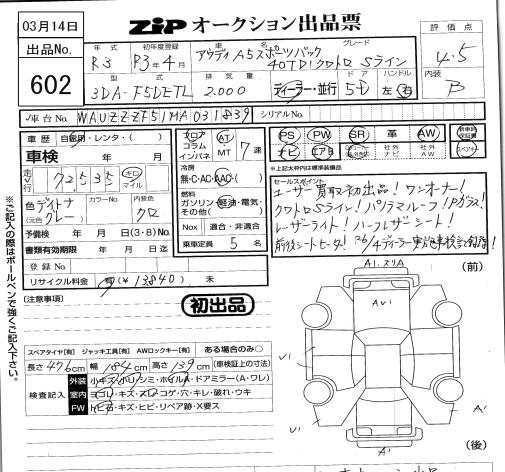 03月14日
ZIP オークション出品票
出品No.
602
評価点
4.5
内装
B
年式
R3
初年度登録
R3年4月
車名
グレード
アウディ A5スポーツバック
40TDIクワトロ Sライン
型式
3DA-F5DETL
排気量
2.000
ディーラー・並行
ドア
5D
ハンドル
左・右
車台No.
WAUZZZF51MA031839
シリアルNo.
車歴
自家用・レンタ・( )
車検
年 月
走行
72,535
キロ
マイル
色(元色)
デイトナグレー
カラーNo.
内装色
クロ
予備検付
年 月 日(3・8)No.
書類有効期限
年 月 日迄
登録No.
リサイクル料金
有(¥13,840) 未
フロア
コラム
インパネ
AT
MT
7速
冷房
無・C・AC・AAC・( )
燃料
ガソリン・軽油・電気・
その他( )
Nox
適合・非適合
乗車定員
5名
PS PW SR 革 AW
ナビ エアB
社外ナビ
社外AW
新車時保証書
スペアキー
※上記太わ内は標準装備品
セールスポイント
ユーザー買取初出品!ワンオーナー!
クワトロSライン!パノラマルーフ!Pガラス!
レーザーライト!ハーフレザーシート!
(注意事項)
初出品
スペアタイヤ[有] ジャッキ工具[有] AWロックキー[有] ある場合のみ○
長さ476cm 幅184cm 高さ139cm (車検証上の寸法)
検査記入
外装
小キズ・小ヘコ・シミ・ホイルA・ドアミラー(A・ワレ)
室内
ヨゴレ・キズ・スレ・コゲ・穴・キレ・破れ・ウキ
FW
トビ石・キズ・ヒビ・リペア跡・X要ス
(前)
AU1
U1
U1
A1
A1
(後)
※ご記入の際はボールペンで強くご記入下さい。